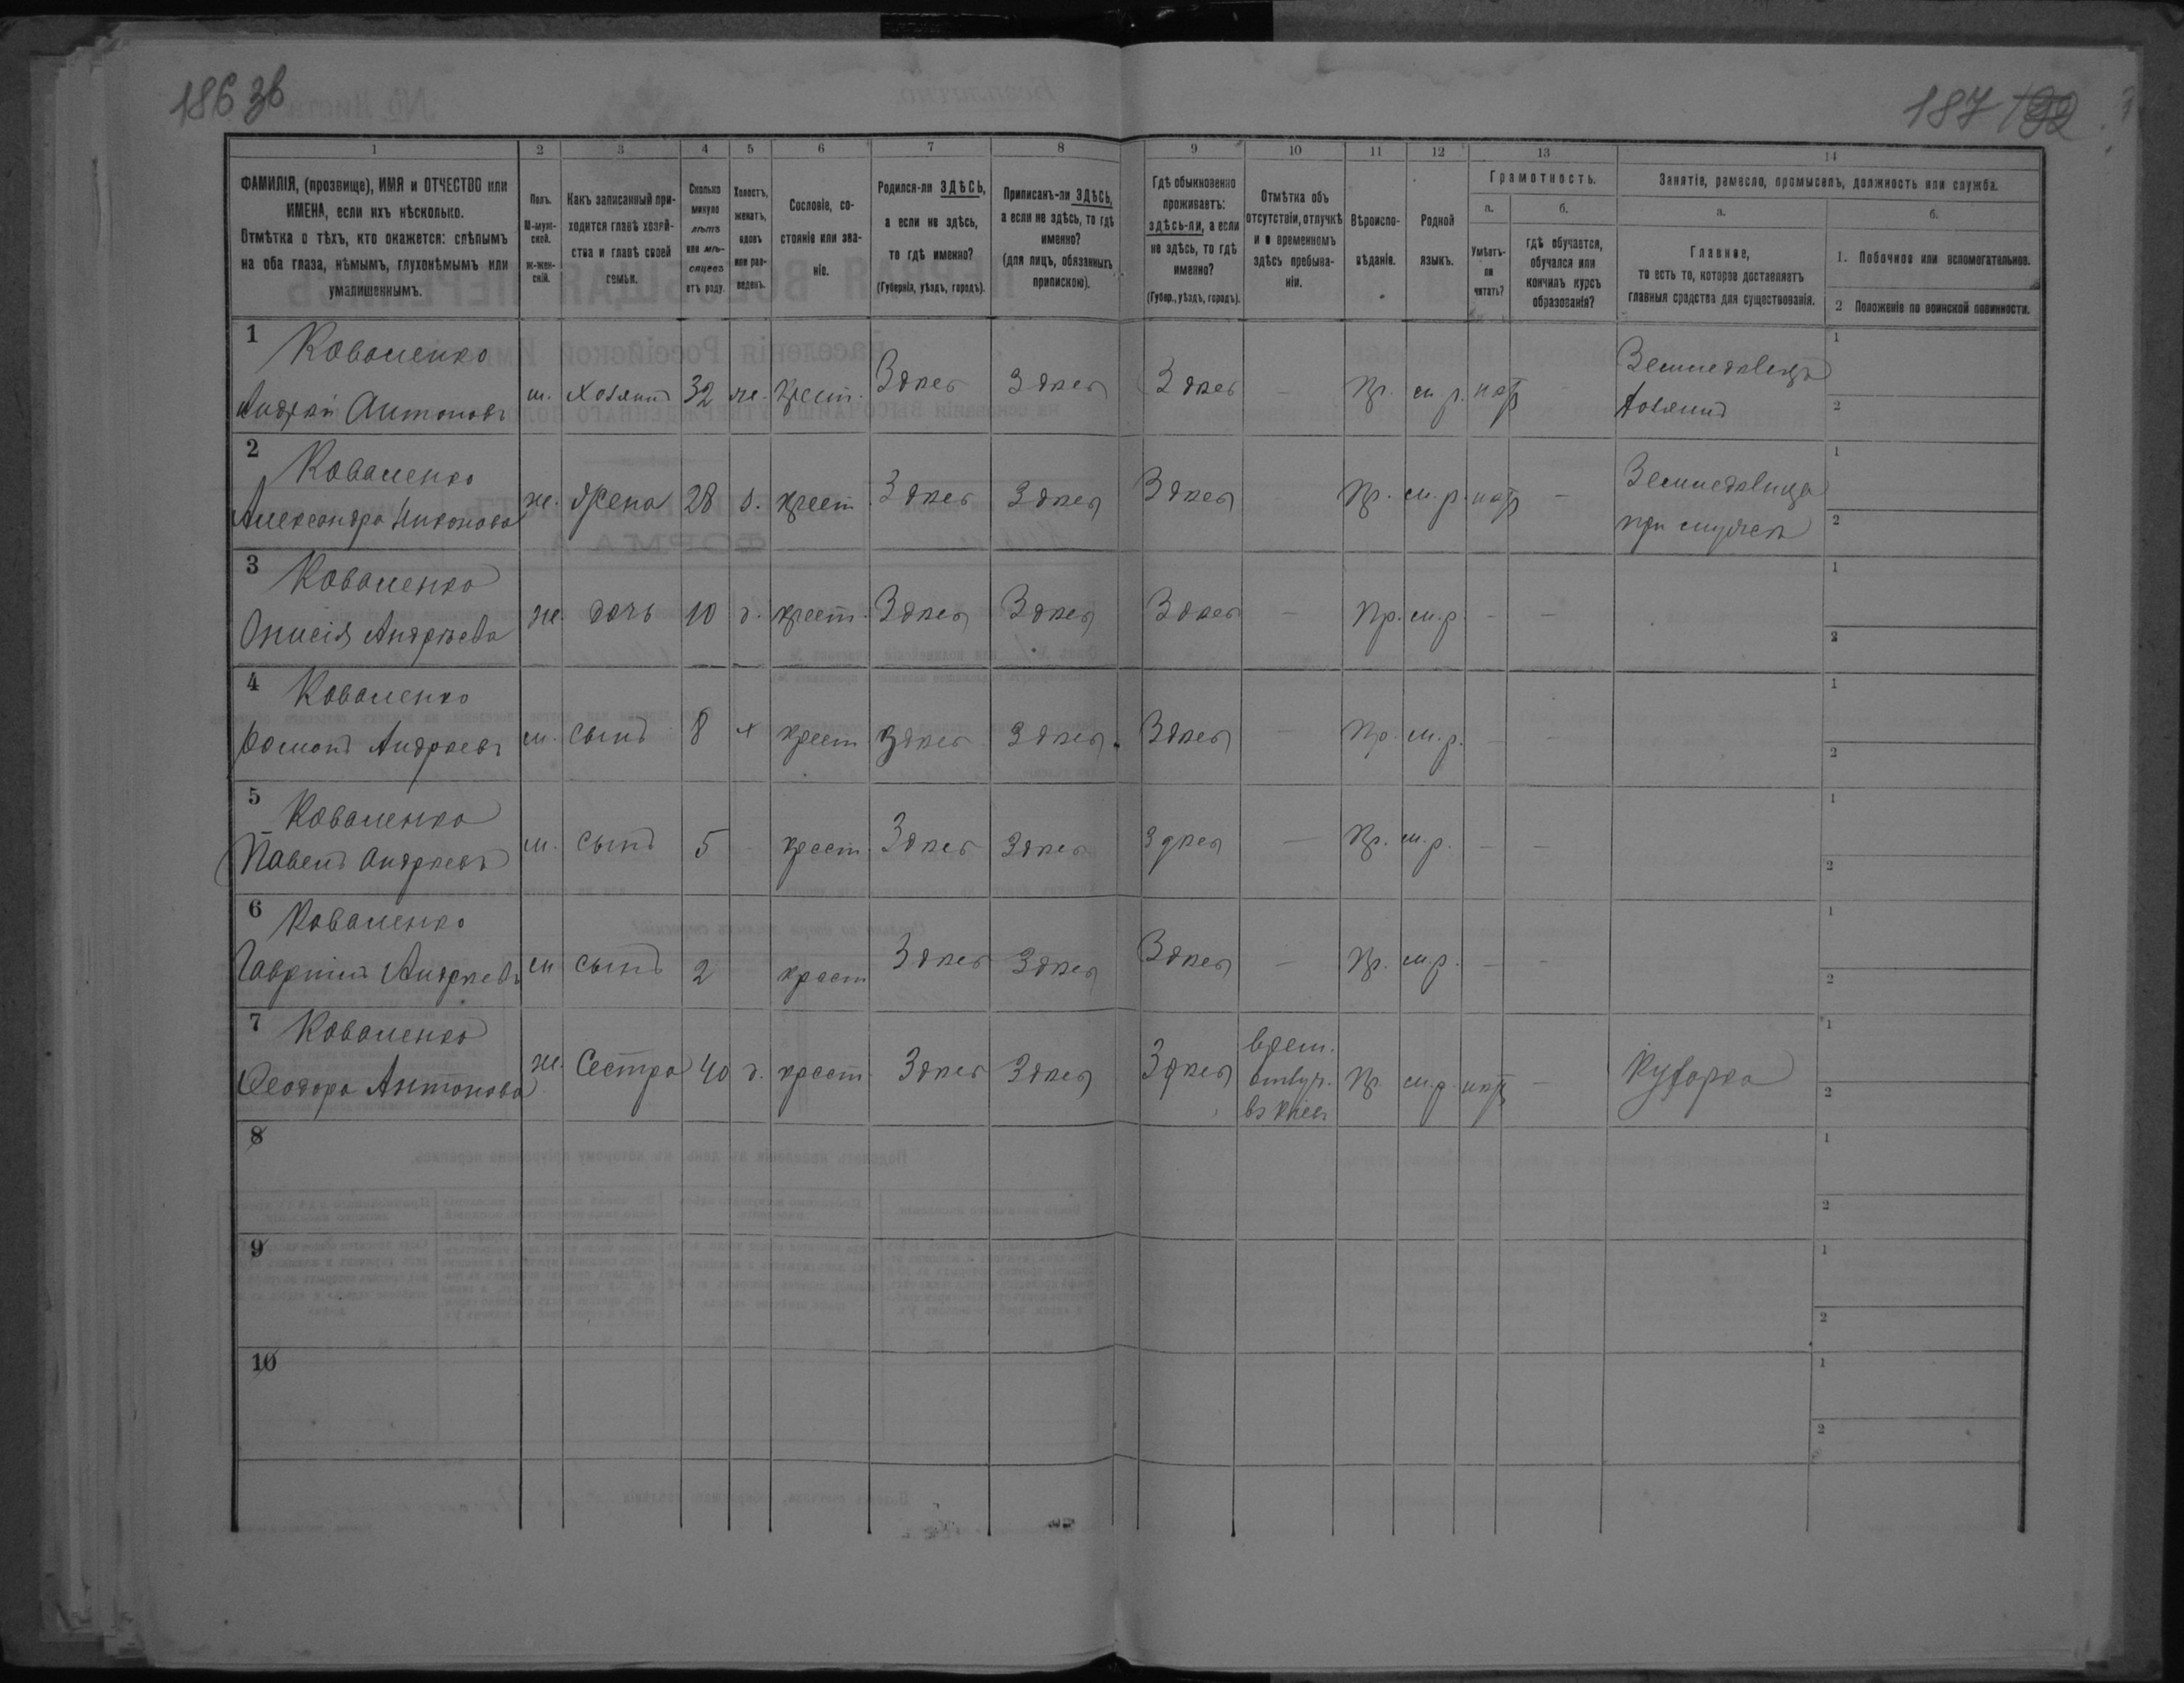 186 зв
187
1 2 3 4 5 6 7 8 9 10 11 12 13 14
ФАМИЛІЯ, (прозвище), ИМЯ и ОТЧЕСТВО или ИМЕНА, если ихъ нѣсколько.
Отмѣтка о тѣхъ, кто окажется: слѣпымъ на оба глаза, нѣмымъ, глухонѣмымъ или умалишеннымъ.
Полъ. М-мужской. Ж-женскій.
Какъ записанный приходится главѣ хозяйства и главѣ своей семьи.
Сколько минуло лѣтъ или мѣсяцевъ отъ роду.
Холостъ, женатъ, вдовъ или разведенъ.
Сословіе, состояніе или званіе.
Родился-ли ЗДѢСЬ, а если не здѣсь, то гдѣ именно? (Губернія, уѣздъ, городъ).
Приписанъ-ли ЗДѢСЬ, а если не здѣсь, то гдѣ именно? (для лицъ, обязанныхъ припискою).
Гдѣ обыкновенно проживаетъ: здѣсь-ли, а если не здѣсь, то гдѣ именно? (Губер., уѣздъ, городъ).
Отмѣтка объ отсутствіи, отлучкѣ и о временномъ здѣсь пребываніи.
Вѣроисповѣданіе.
Родной языкъ.
Грамотность.
а. Умѣетъ-ли читать?
б. гдѣ обучается, обучался или кончилъ курсъ образованія?
Занятіе, ремесло, промыселъ, должность или служба.
а. Главное, то есть то, которое доставляетъ главныя средства для существованія.
б. 1. Побочное или вспомогательное.
2 Положеніе по воинской повинности.
1 Коваленко
Андрей Антоновъ м. хозяинъ 32 ж. крест. Здѣсь Здѣсь Здѣсь — Пр. м. р. нѣтъ — Земледѣлецъ хозяинъ 1 2
2 Коваленко
Александра Никонова ж. жена 28 з. крест. Здѣсь Здѣсь Здѣсь Пр. м. р. нѣтъ — Земледѣлица при мужѣ 1 2
3 Коваленко
Онисія Андрѣева ж. дочь 10 д. крест. Здѣсь Здѣсь Здѣсь — Пр. м. р. — — 1 2
4 Коваленко
Андрѣевъ м. сынъ 8 х крест Здѣсь Здѣсь Здѣсь — Пр. м. р. — — 1 2
5 Коваленко
Павелъ Андрѣевъ м. сынъ 5 - крест. Здѣсь Здѣсь Здѣсь — Пр. м. р. — — 1 2
6 Коваленко
Гавріилъ Андрѣевъ м сынъ 2 крест Здѣсь Здѣсь Здѣсь — Пр. м. р. — — 1 2
7 Коваленко
Ѳеодора Антонова ж. Сестра 40 д. крест. Здѣсь Здѣсь Здѣсь врем. въ Кіевъ Пр м. р. нѣтъ — Кухарка 1 2
8 1 2
9 1 2
10 1 2